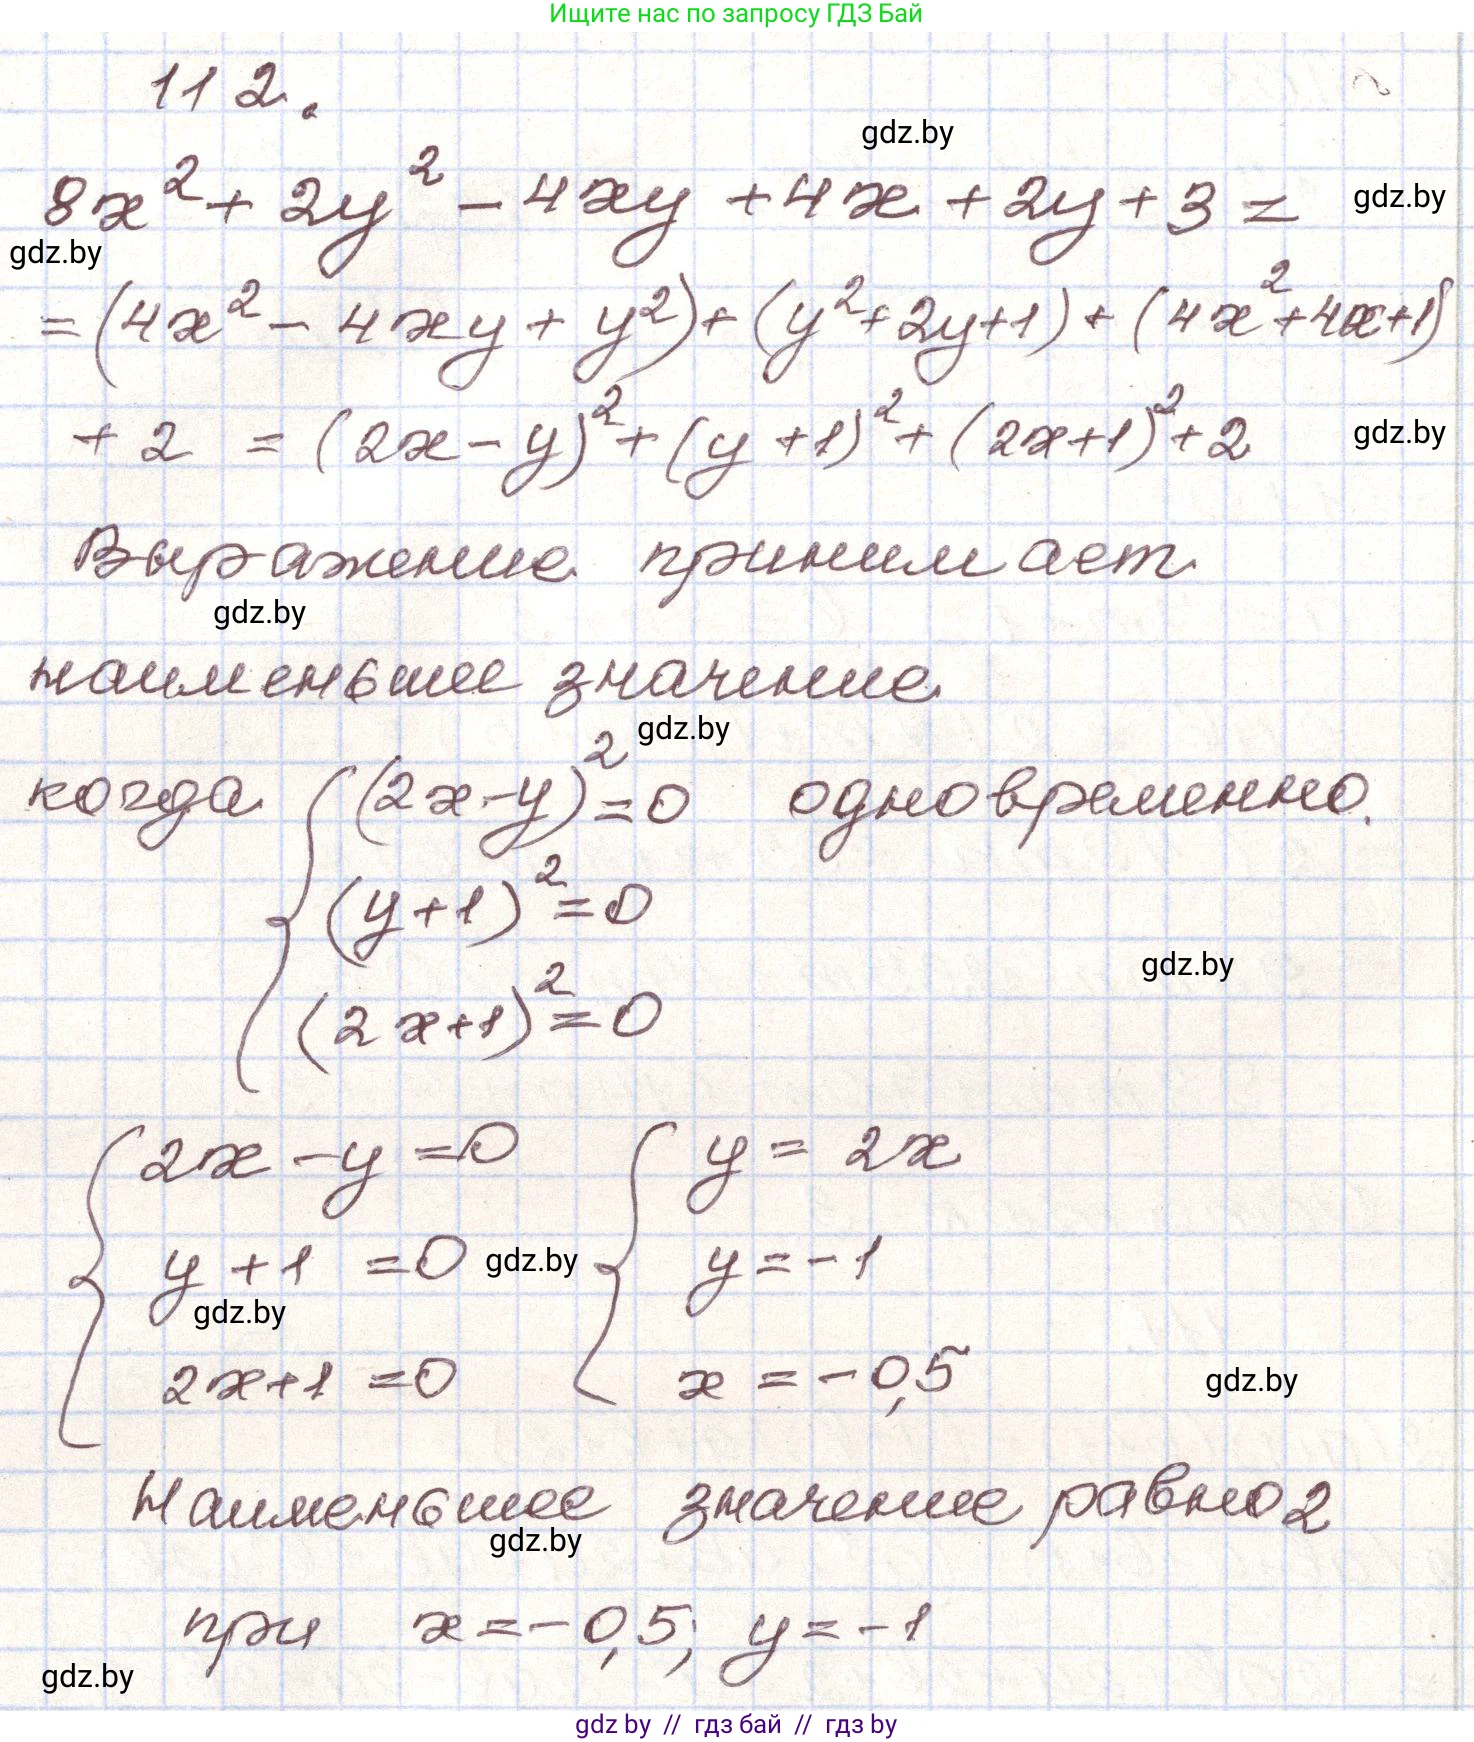 Ищите нас по запросу ГДЗ Бай
112.
gdz.by
8x² + 2y² - 4xy + 4x + 2y + 3 =
gdz.by
gdz.by
= (4x² - 4xy + y²) + (y² + 2y + 1) + (4x² + 4x + 1)
+ 2 = (2x - y)² + (y + 1)² + (2x + 1)² + 2
gdz.by
Выражение принимает
gdz.by
наименьшее значение
gdz.by
когда { (2x - y)² = 0 одновременно.
(y + 1)² = 0
gdz.by
(2x + 1)² = 0
{ 2x - y = 0 { y = 2x
y + 1 = 0 gdz.by y = -1
gdz.by
2x + 1 = 0 x = -0,5
gdz.by
Наименьшее значение равно 2
gdz.by
при x = -0,5; y = -1
gdz.by
gdz by // гдз бай // гдз by